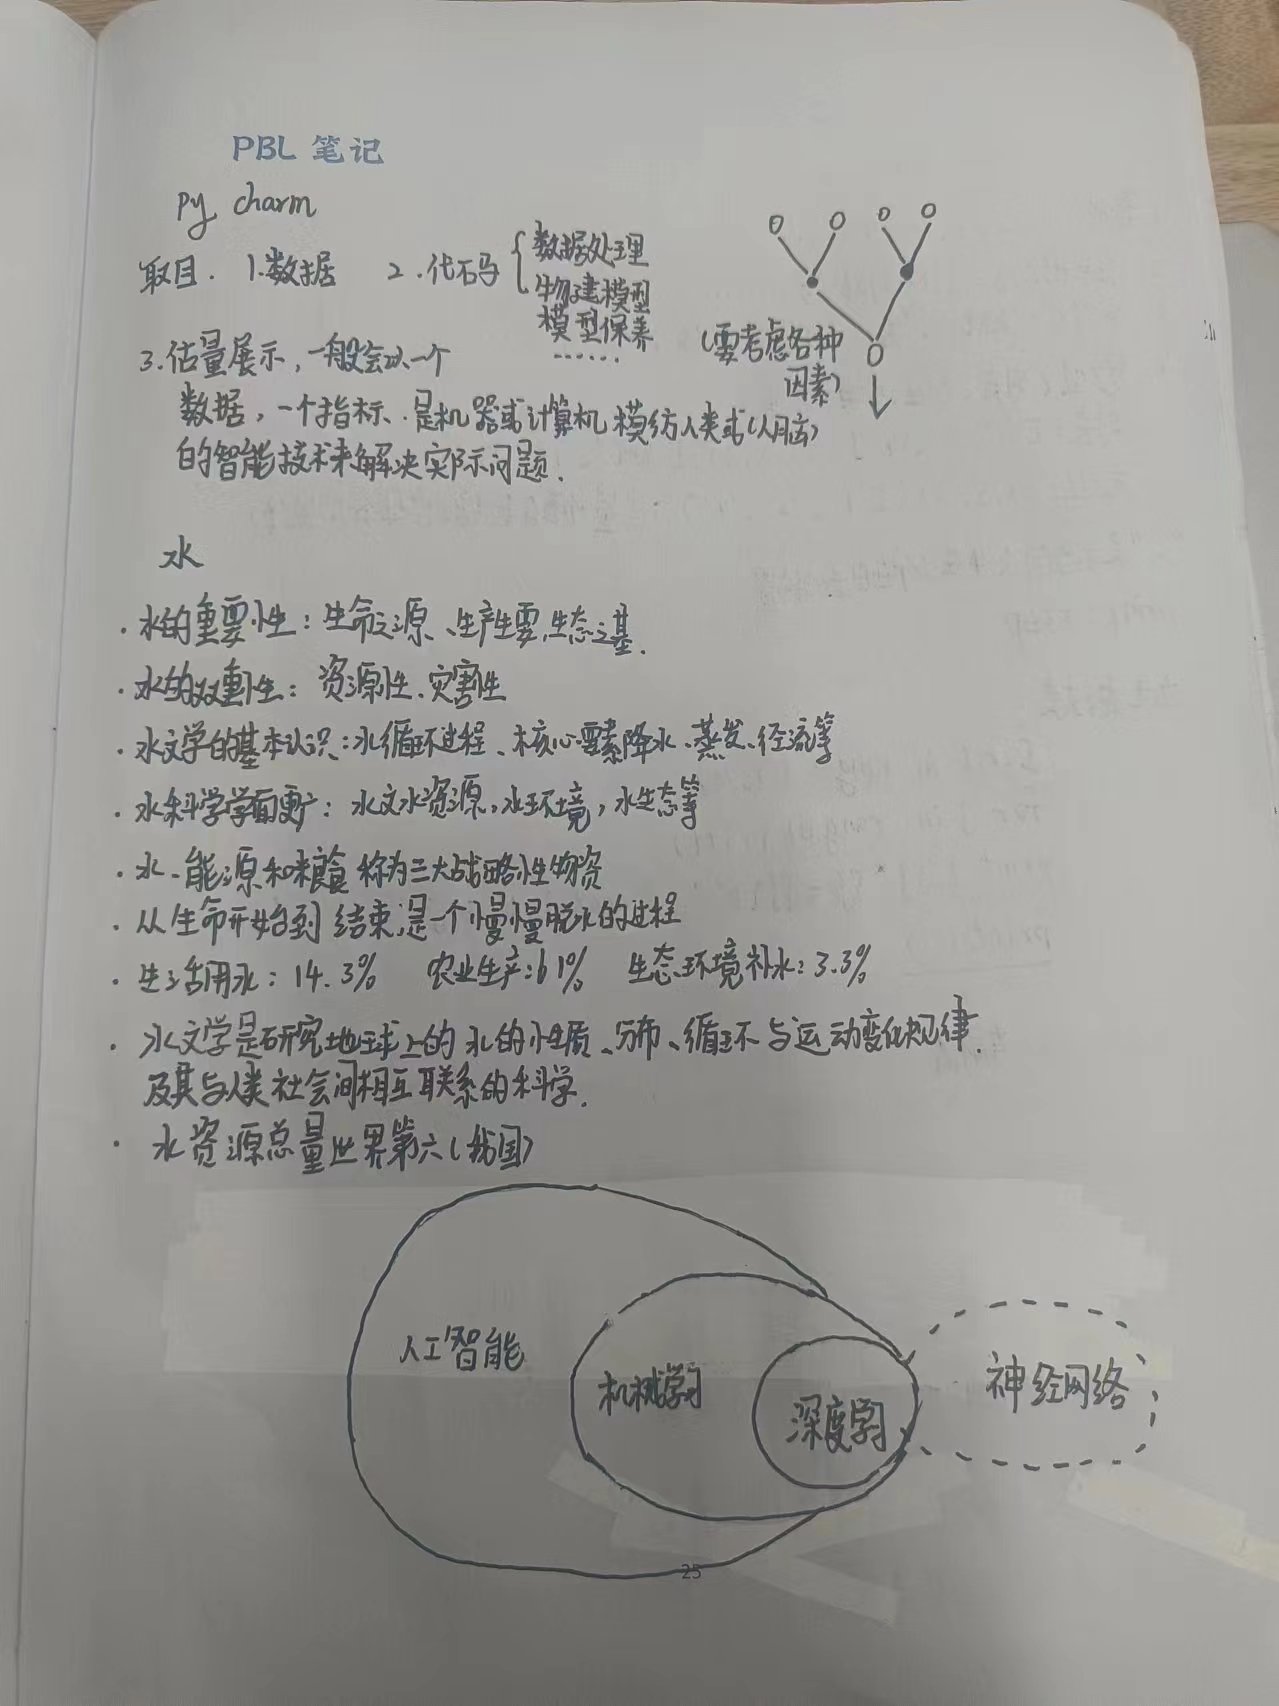 PBL 笔记
py charm
取目. 1.数据 2.代码 数据处理
构建模型
模型保养
……
(要考虑各种
因素)
3.估量展示,一般会以一个
数据,一个指标.是机器或计算机模仿人类或(人脑)
的智能技术来解决实际问题.
水
·水的重要性:生命之源、生产生要,生态之基.
·水的双重性:资源性、灾害性
·水文学的基本认识:水循环过程、核心要素降水、蒸发、径流等
·水科学学面更广:水文水资源,水环境,水生态等
·水、能源和粮食称为三大战略性物资
·从生命开始到结束,是一个慢慢脱水的过程
·生活用水:14.3% 农业生产:61% 生态环境补水:3.3%
·水文学是研究地球上的水的性质、分布、循环与运动变化规律.
及其与人类社会间相互联系的科学.
·水资源总量世界第六(我国)
人工智能
机械学习
深度学习
神经网络
25